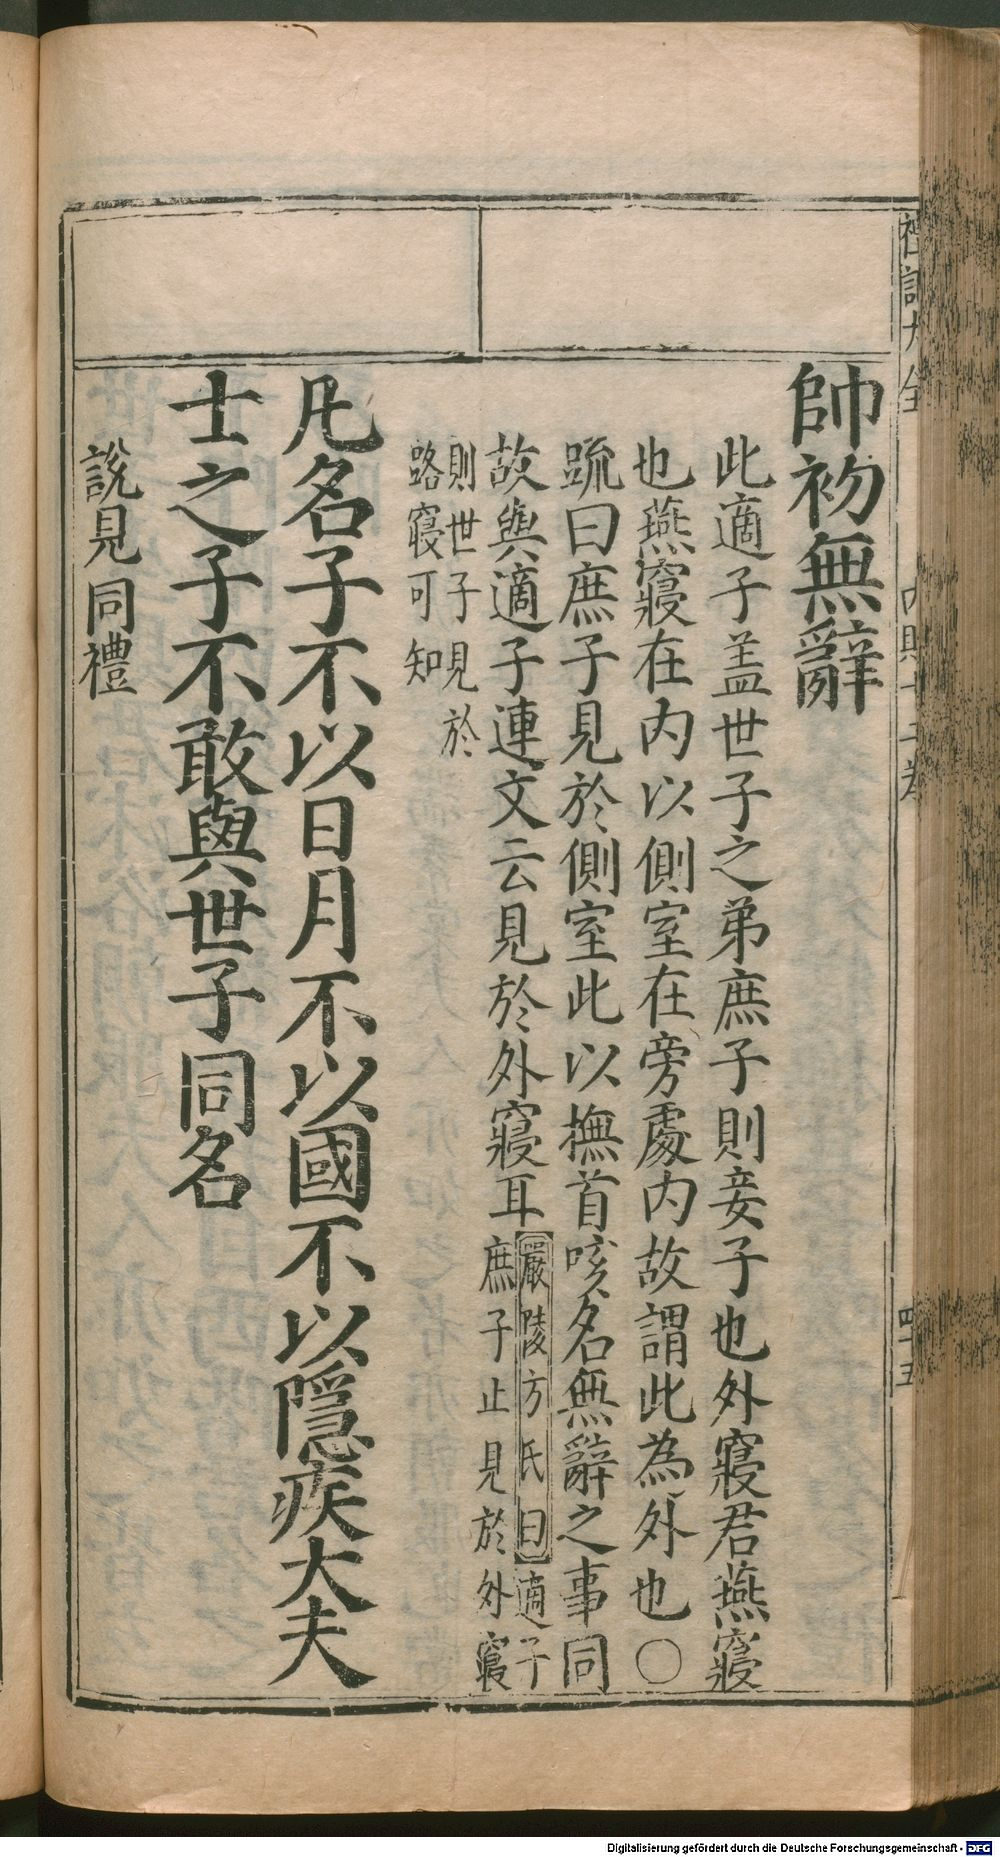 帥初無辭
此適子盖世子之弟庶子則妾子也外寢君燕寢
也燕寢在内以側室在旁處内故謂此為外也〇
䟽曰庶子見於側室此以撫首咳名無辭之事同
故與適子連文云見於外寢耳
嚴陵方氏曰適子
庶子止見於外寢
則世子見於
路寢可知
凡名子不以日月不以國不以隠疾大夫
士之子不敢與世子同名
說見同禮
四十五
Digitalisierung gefördert durch die Deutsche Forschungsgemeinschaft - DFG